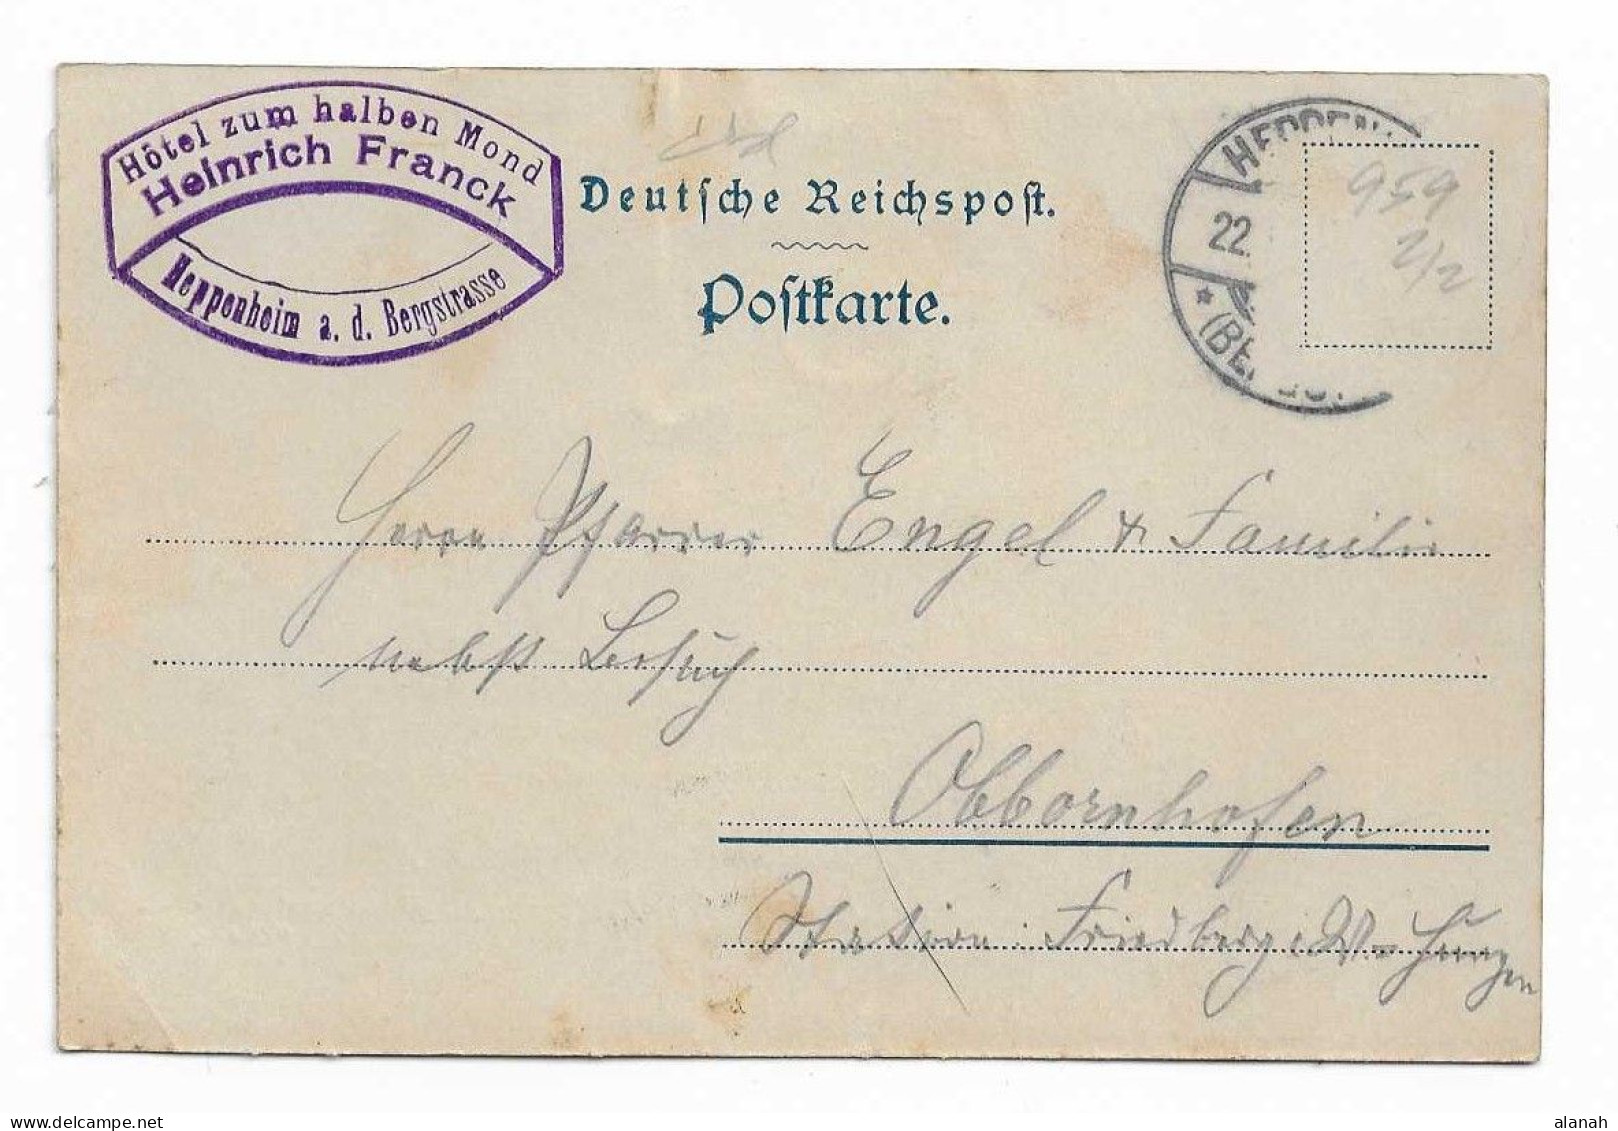 Hôtel zum halben Mond
Heinrich Franck
Heppenheim a. d. Bergstrasse
Deutsche Reichspost.
Postkarte.
HEPPEN
22
(BE
959
1/2
Herrn Pfarrer Engel & Familie
nebst Besuch
Obbornhofen
Station: Friedberg i. W - Hungen
alanah